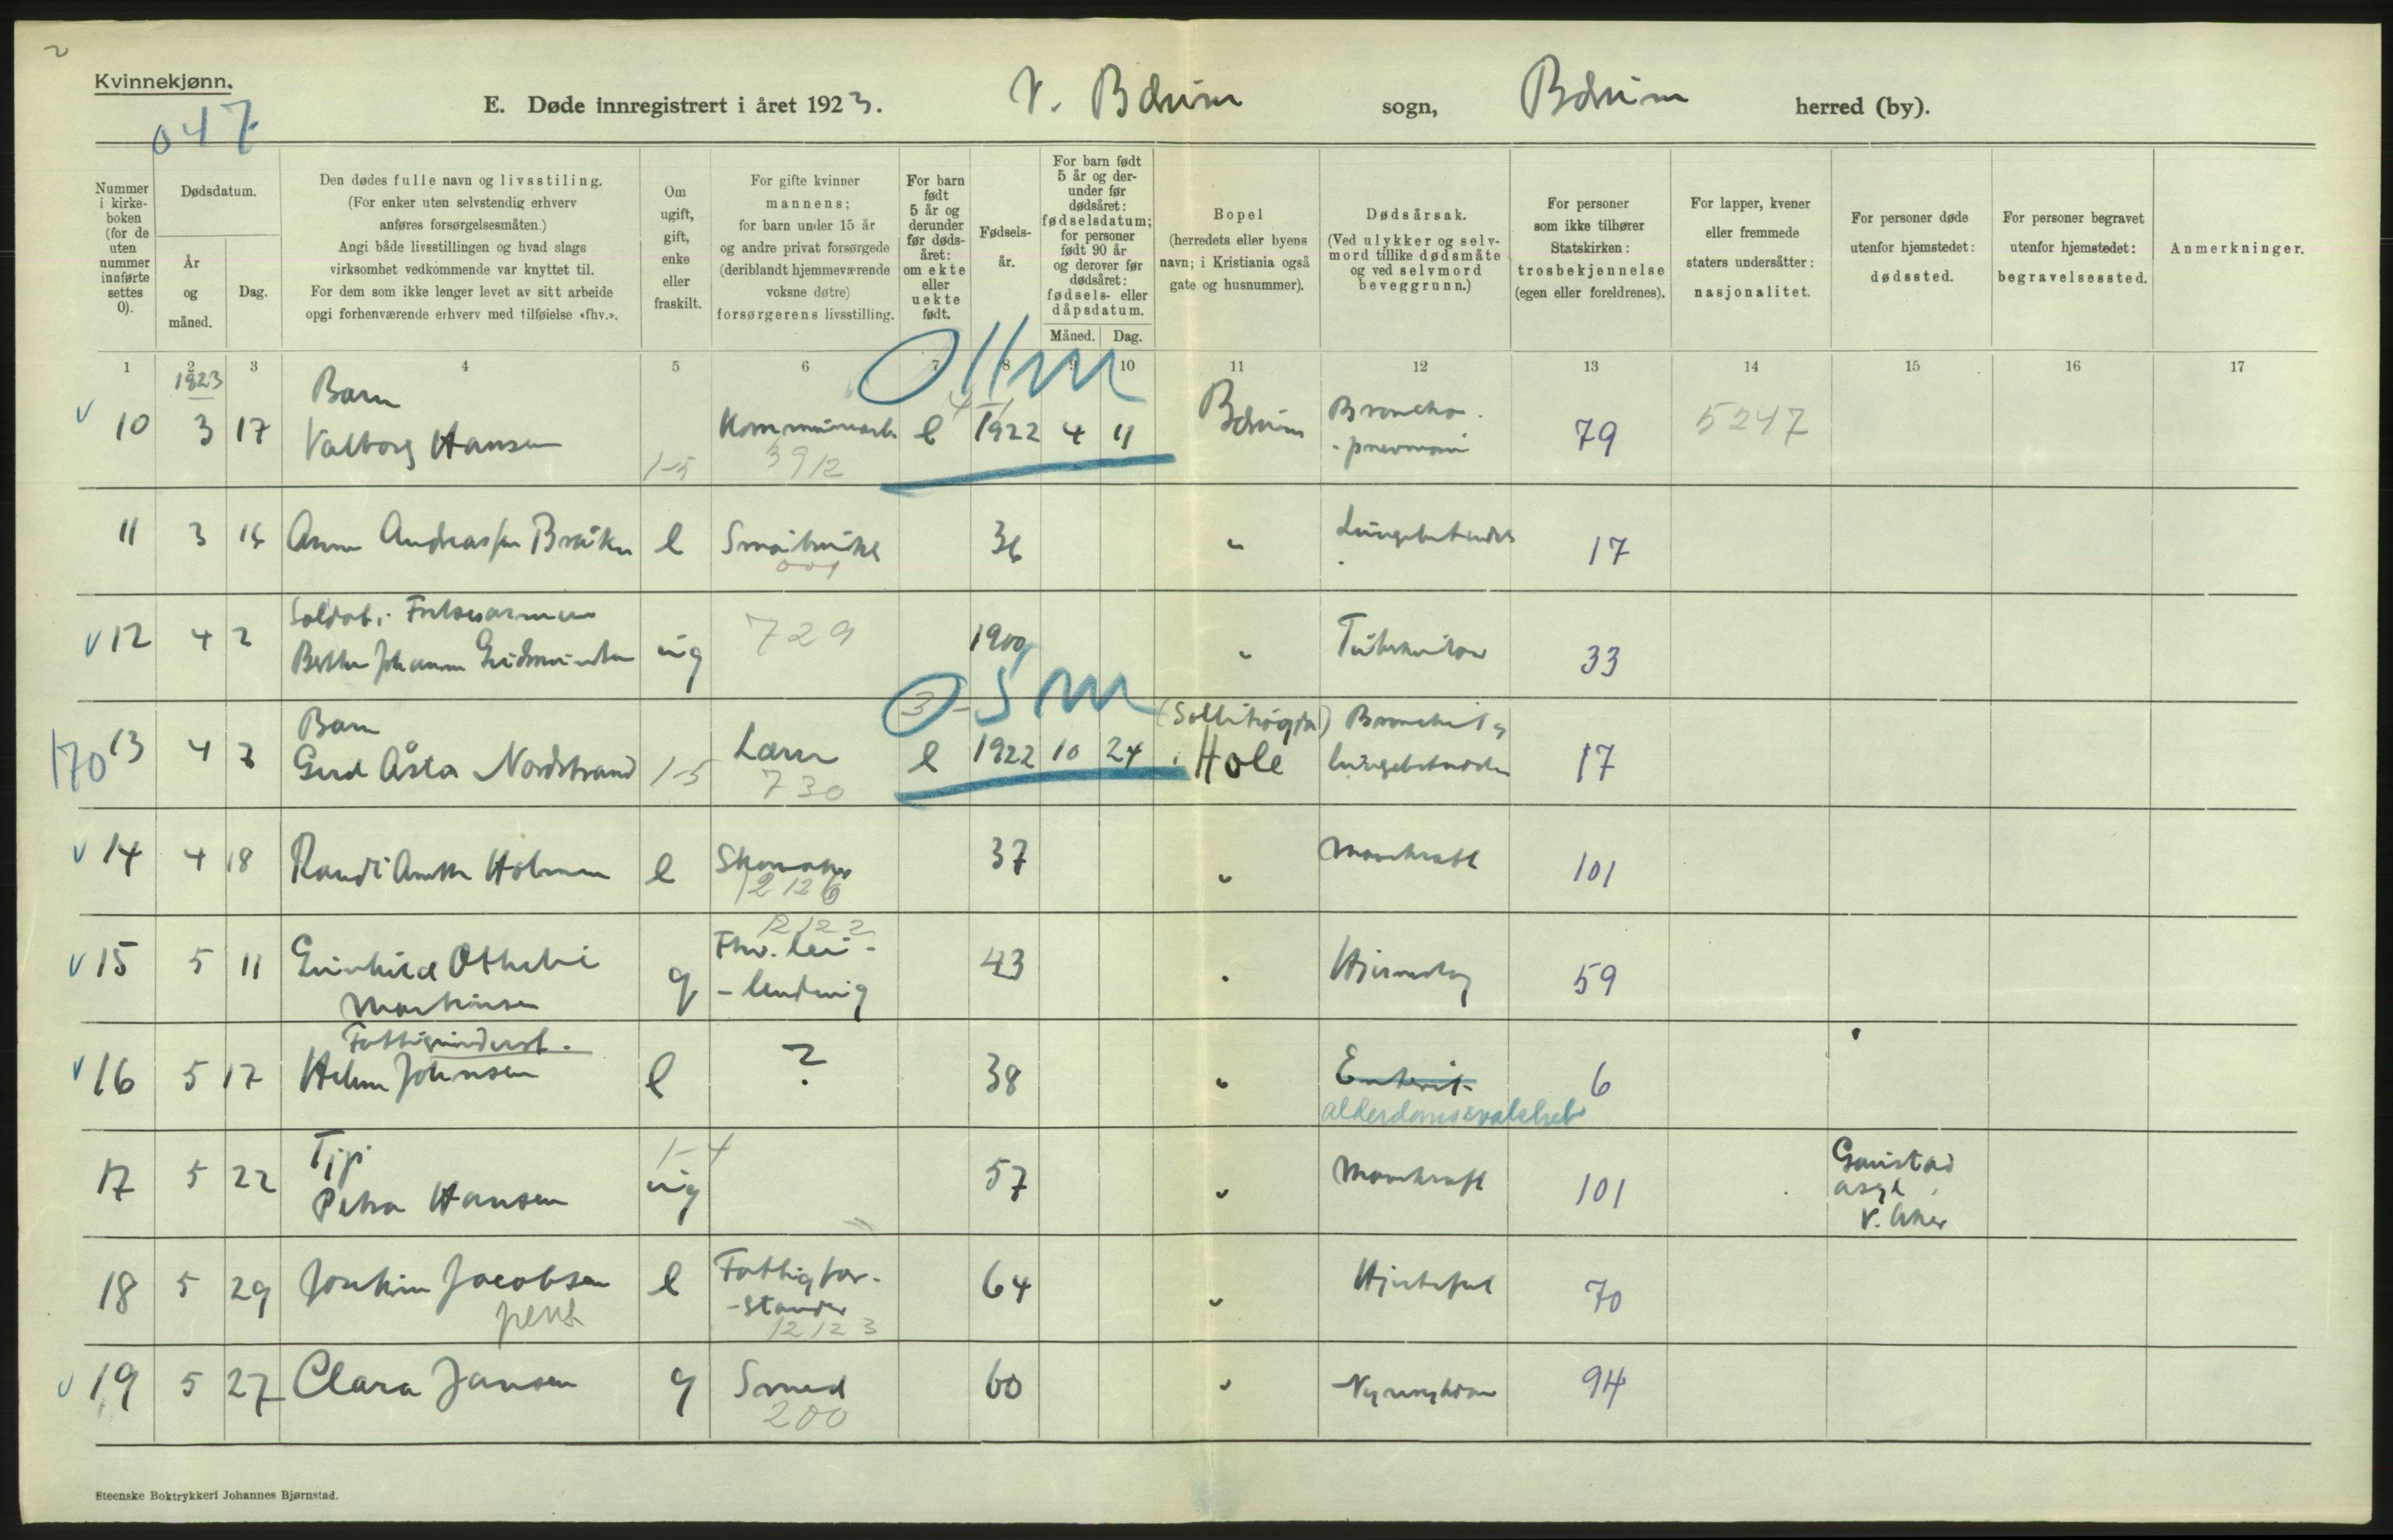 2
Kvinnekjønn.
047
E. Døde innregistrert i året 1923. V. Bærum sogn, Bærum herred (by).
Nummer i kirke- boken (for de uten nummer innførte settes 0).
Dødsdatum.
År og måned.
Dag.
Den dødes fulle navn og livsstiling.
(For enker uten selvstendig erhverv
anføres forsørgelsesmåten.)
Angi både livsstillingen og hvad slags
virksomhet vedkommende var knyttet til.
For dem som ikke lenger levet av sitt arbeide
opgi forhenværende erhverv med tilføielse «fhv.».
Om ugift, gift, enke eller fraskilt.
For gifte kvinner
mannens;
for barn under 15 år
og andre privat forsørgede
(deriblandt hjemmeværende
voksne døtre)
forsørgerens livsstilling.
For barn født 5 år og derunder før døds- året: om ekte eller uekte født.
Fødsels- år.
For barn født 5 år og der- under før dødsåret: fødselsdatum; for personer født 90 år og derover før dødsåret: fødsels- eller dåpsdatum.
Måned. Dag.
Bopel
(herredets eller byens
navn; i Kristiania også
gate og husnummer).
Dødsårsak.
(Ved ulykker og selv-
mord tillike dødsmåte
og ved selvmord
beveggrunn.)
For personer
som ikke tilhører
Statskirken:
trosbekjennelse
(egen eller foreldrenes).
For lapper, kvener
eller fremmede
staters undersåtter:
nasjonalitet.
For personer døde
utenfor hjemstedet:
dødssted.
For personer begravet
utenfor hjemstedet:
begravelsessted.
Anmerkninger.
1 2 3 4 5 6 7 8 9 10 11 12 13 14 15 16 17
1923
011m
Barn
10 3 17 Valborg Hansen 1-5 Kommunearb. 3912 e 1922 4 11 Bærum Broncho-
-pneumoni 79 5247
11 3 15 Anna Andreassen e 001 36 " 17
Soldat i Frelsesarmeen
12 4 2 ug 729 1900 " Tuberkulose 33
3 - 5m
Barn (Sollihøgda) Bronchit
170 13 4 2 Gerd Åsta Nordstrand 1-5 730 e 1922 10 24 Hole lungebetendelse 17
14 4 18 Randi Holmen e Skomaker 12126 37 " Marekraft 101
12122
15 5 11 Gunhild Othelie g Fhv. lei-
Martinsen -lending 43 " Hjerneslag 59
Fattigunderst.
16 5 17 Johnsen e ? 38 " Enterit 6
alderdomssvakhet
Tjp 1-4
17 5 22 Petra Hansen ug 57 " Marekraft 101 Gaustad
asyl
V. Aker
18 5 29 Jacobsen e Fattigfor-
-stander 64 " Hjertefeil 70
pens. 12123
19 5 27 Clara Jansen g Smed 60 " 94
200
Steenske Boktrykkeri Johannes Bjørnstad.